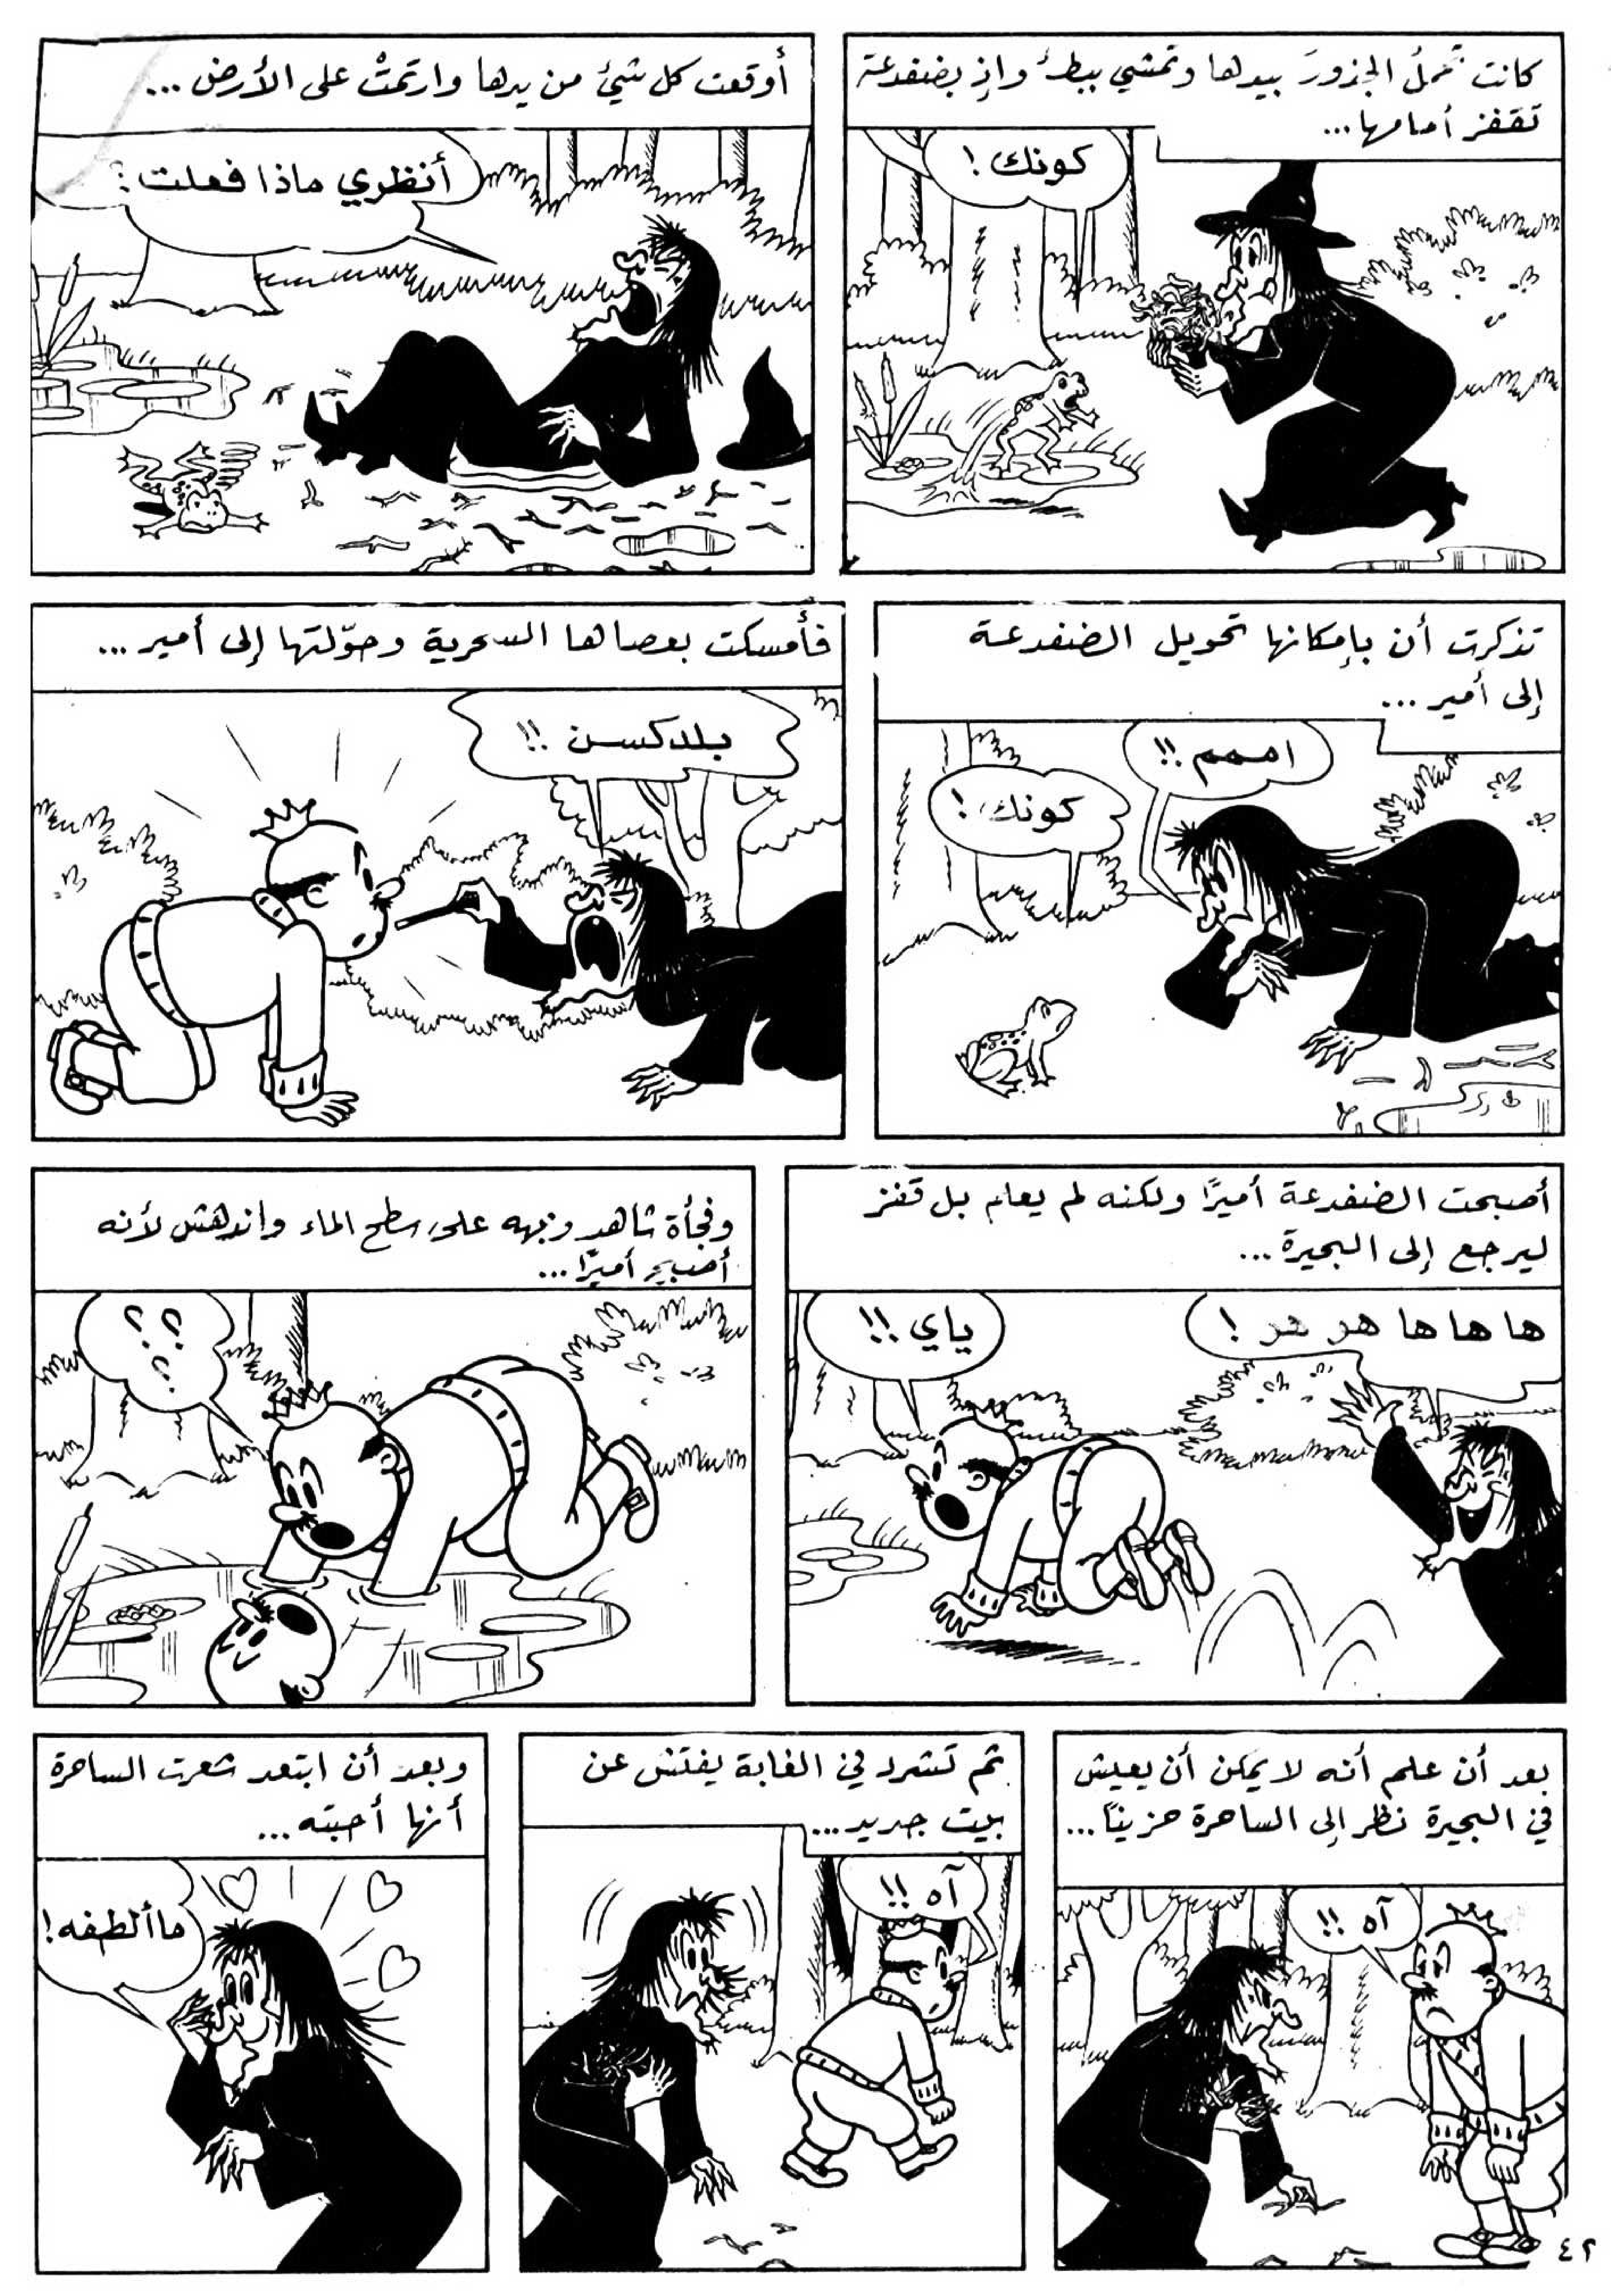 كانت تحملُ الجزورَ بيدها وتمشي ببطءٍ وإذ بضفدعة
تقفز أمامها...
كونك!
أوقعت كل شيءٍ من يدها وارتمتْ على الأرض...
أنظري ماذا فعلت؟
تذكرت أن بإمكانها تحويل الضفدعة
إلى أمير...
اممم!!
كونك!
فأمسكت بعصاها السحرية وحوّلتها إلى أمير...
بلدكسن!!
أصبحت الضفدعة أميرًا ولكنه لم يعلم بل قفز
ليرجع إلى البحيرة...
ها ها ها هو هو!
ياي!!
وفجأة شاهد وجهه على سطح الماء واندهش لأنه
أصبح أميرًا...
؟؟؟
بعد أن علم أنه لا يمكن أن يعيش
في البحيرة نظر إلى الساحرة حزينًا...
آه!!
ثم تشرد في الغابة يفتش عن
بيت جديد...
آه!!
وبعد أن ابتعد شعرت الساحرة
أنها أحبته...
ما ألطفه!
٤٢